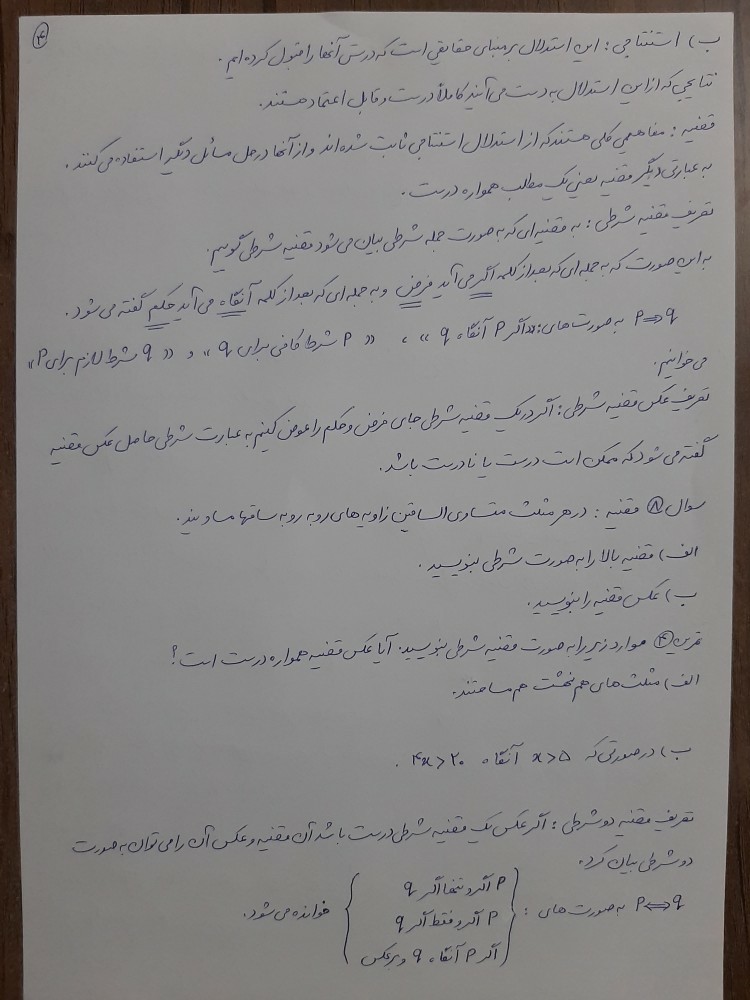 ۴
ب) استنتاجی : این استدلال بر مبنای حقایقی است که درستی آنها را قبول کرده ایم .
نتایجی که از این استدلال به دست می آیند کاملاً درست و قابل اعتماد هستند.
قضیه : مفاهیمی کلی هستند که از استدلال استنتاجی ثابت شده اند و از آنها در حل مسائل دیگر استفاده می کنند .
به عبارتی دیگر قضیه یعنی یک مطلب همواره درست .
تعریف قضیه شرطی : به قضیه ای که به صورت جمله شرطی بیان می شود قضیه شرطی گوییم.
به این صورت که به جمله ای که بعد از کلمه اگر می آید فرض و به جمله ای که بعد از کلمه آنگاه می آید حکم گفته می شود .
P⇒q به صورت های: «اگر P آنگاه q» ، «P شرط کافی برای q» و «q شرط لازم برای P»
می خوانیم.
تعریف عکس قضیه شرطی : اگر در یک قضیه شرطی جای فرض و حکم را عوض کنیم به عبارت شرطی حاصل عکس قضیه
گفته می شود که ممکن است درست یا نادرست باشد.
سوال ۸ قضیه : در هر مثلث متساوی الساقین زاویه های روبه رو به ساقها مساویند.
الف) قضیه بالا را به صورت شرطی بنویسید .
ب) عکس قضیه را بنویسید.
تمرین ۴ موارد زیر را به صورت قضیه شرطی بنویسید. آیا عکس قضیه همواره درست است؟
الف) مثلث های هم نهشت هم مساحتند.
ب) در صورتی که x>۵ آنگاه ۴x>۲۰ .
تعریف قضیه دو شرطی : اگر عکس یک قضیه شرطی درست باشد آن قضیه و عکس آن را می توان به صورت
دو شرطی بیان کرد.
P⇔q به صورت های : { P اگر و تنها اگر q
P اگر و فقط اگر q
اگر P آنگاه q و برعکس } خوانده می شود.